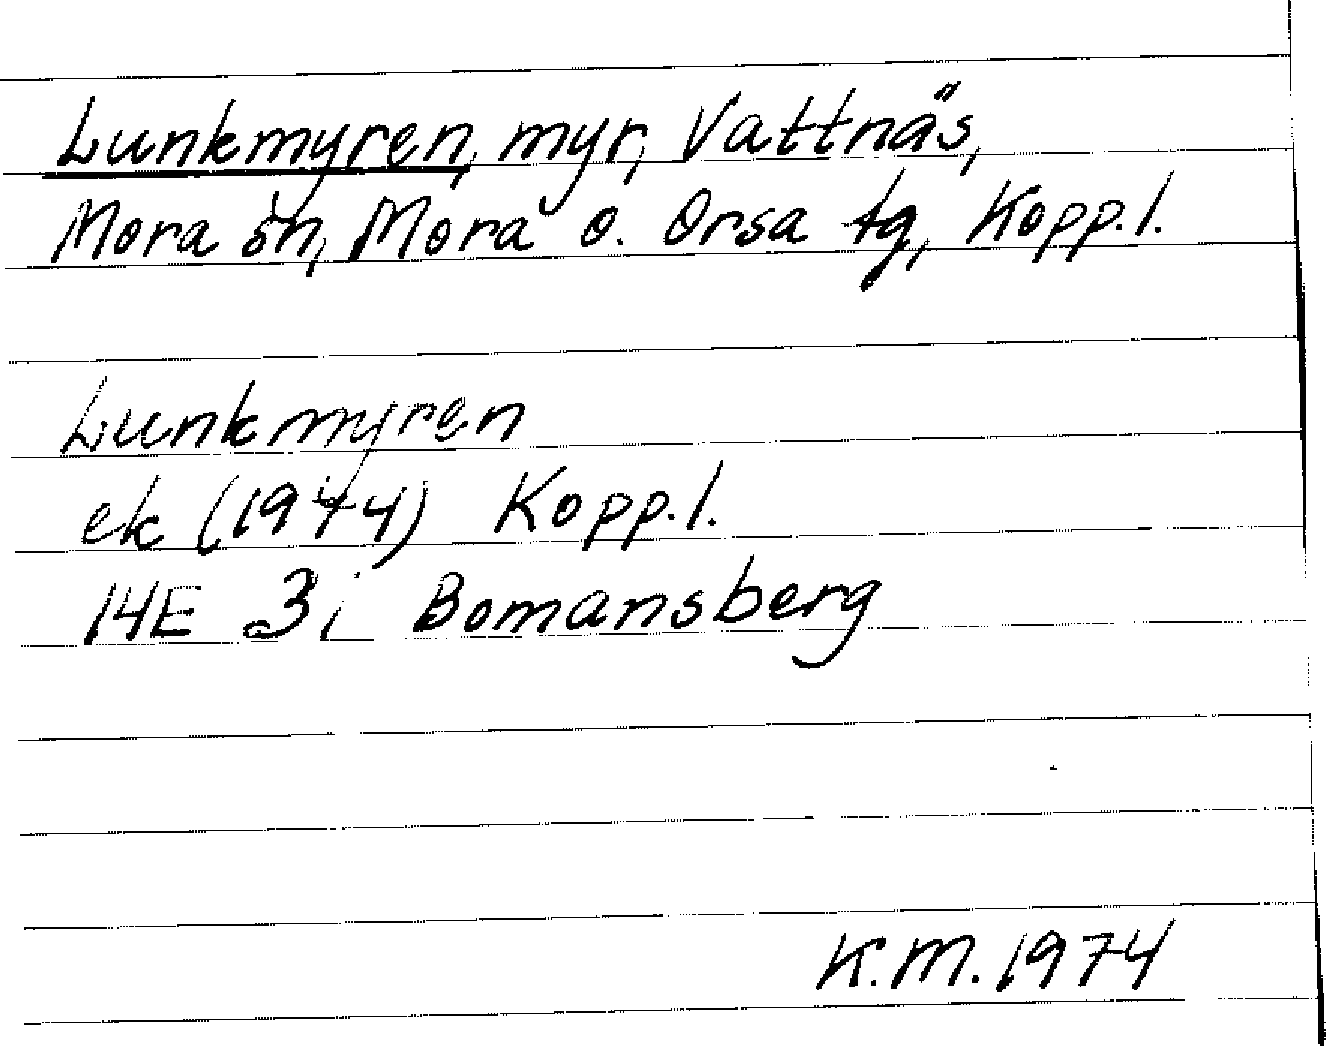 Lunkmyren, myr, Vattnäs,
Mora sn, Mora o. Orsa tg, Kopp. l.
Lunkmyren
ek (1944) Kopp. l.
14E 3i Bomansberg
K.M. 1974